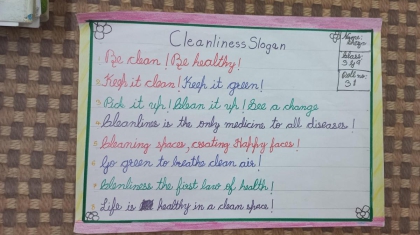 Cleanliness Slogan
Name:
Class
Roll no:
1. Be clean! Be healthy!
2. Keep it clean! Keep it green!
3. Pick it up! Clean it up! See a change
4. Cleanlines is the only medicine to all diseases!
5. Cleaning spaces, creating Happy faces!
6. Go green to breathe clean air!
7. Clenliness the first law of health!
8. Life is healthy in a clean space!